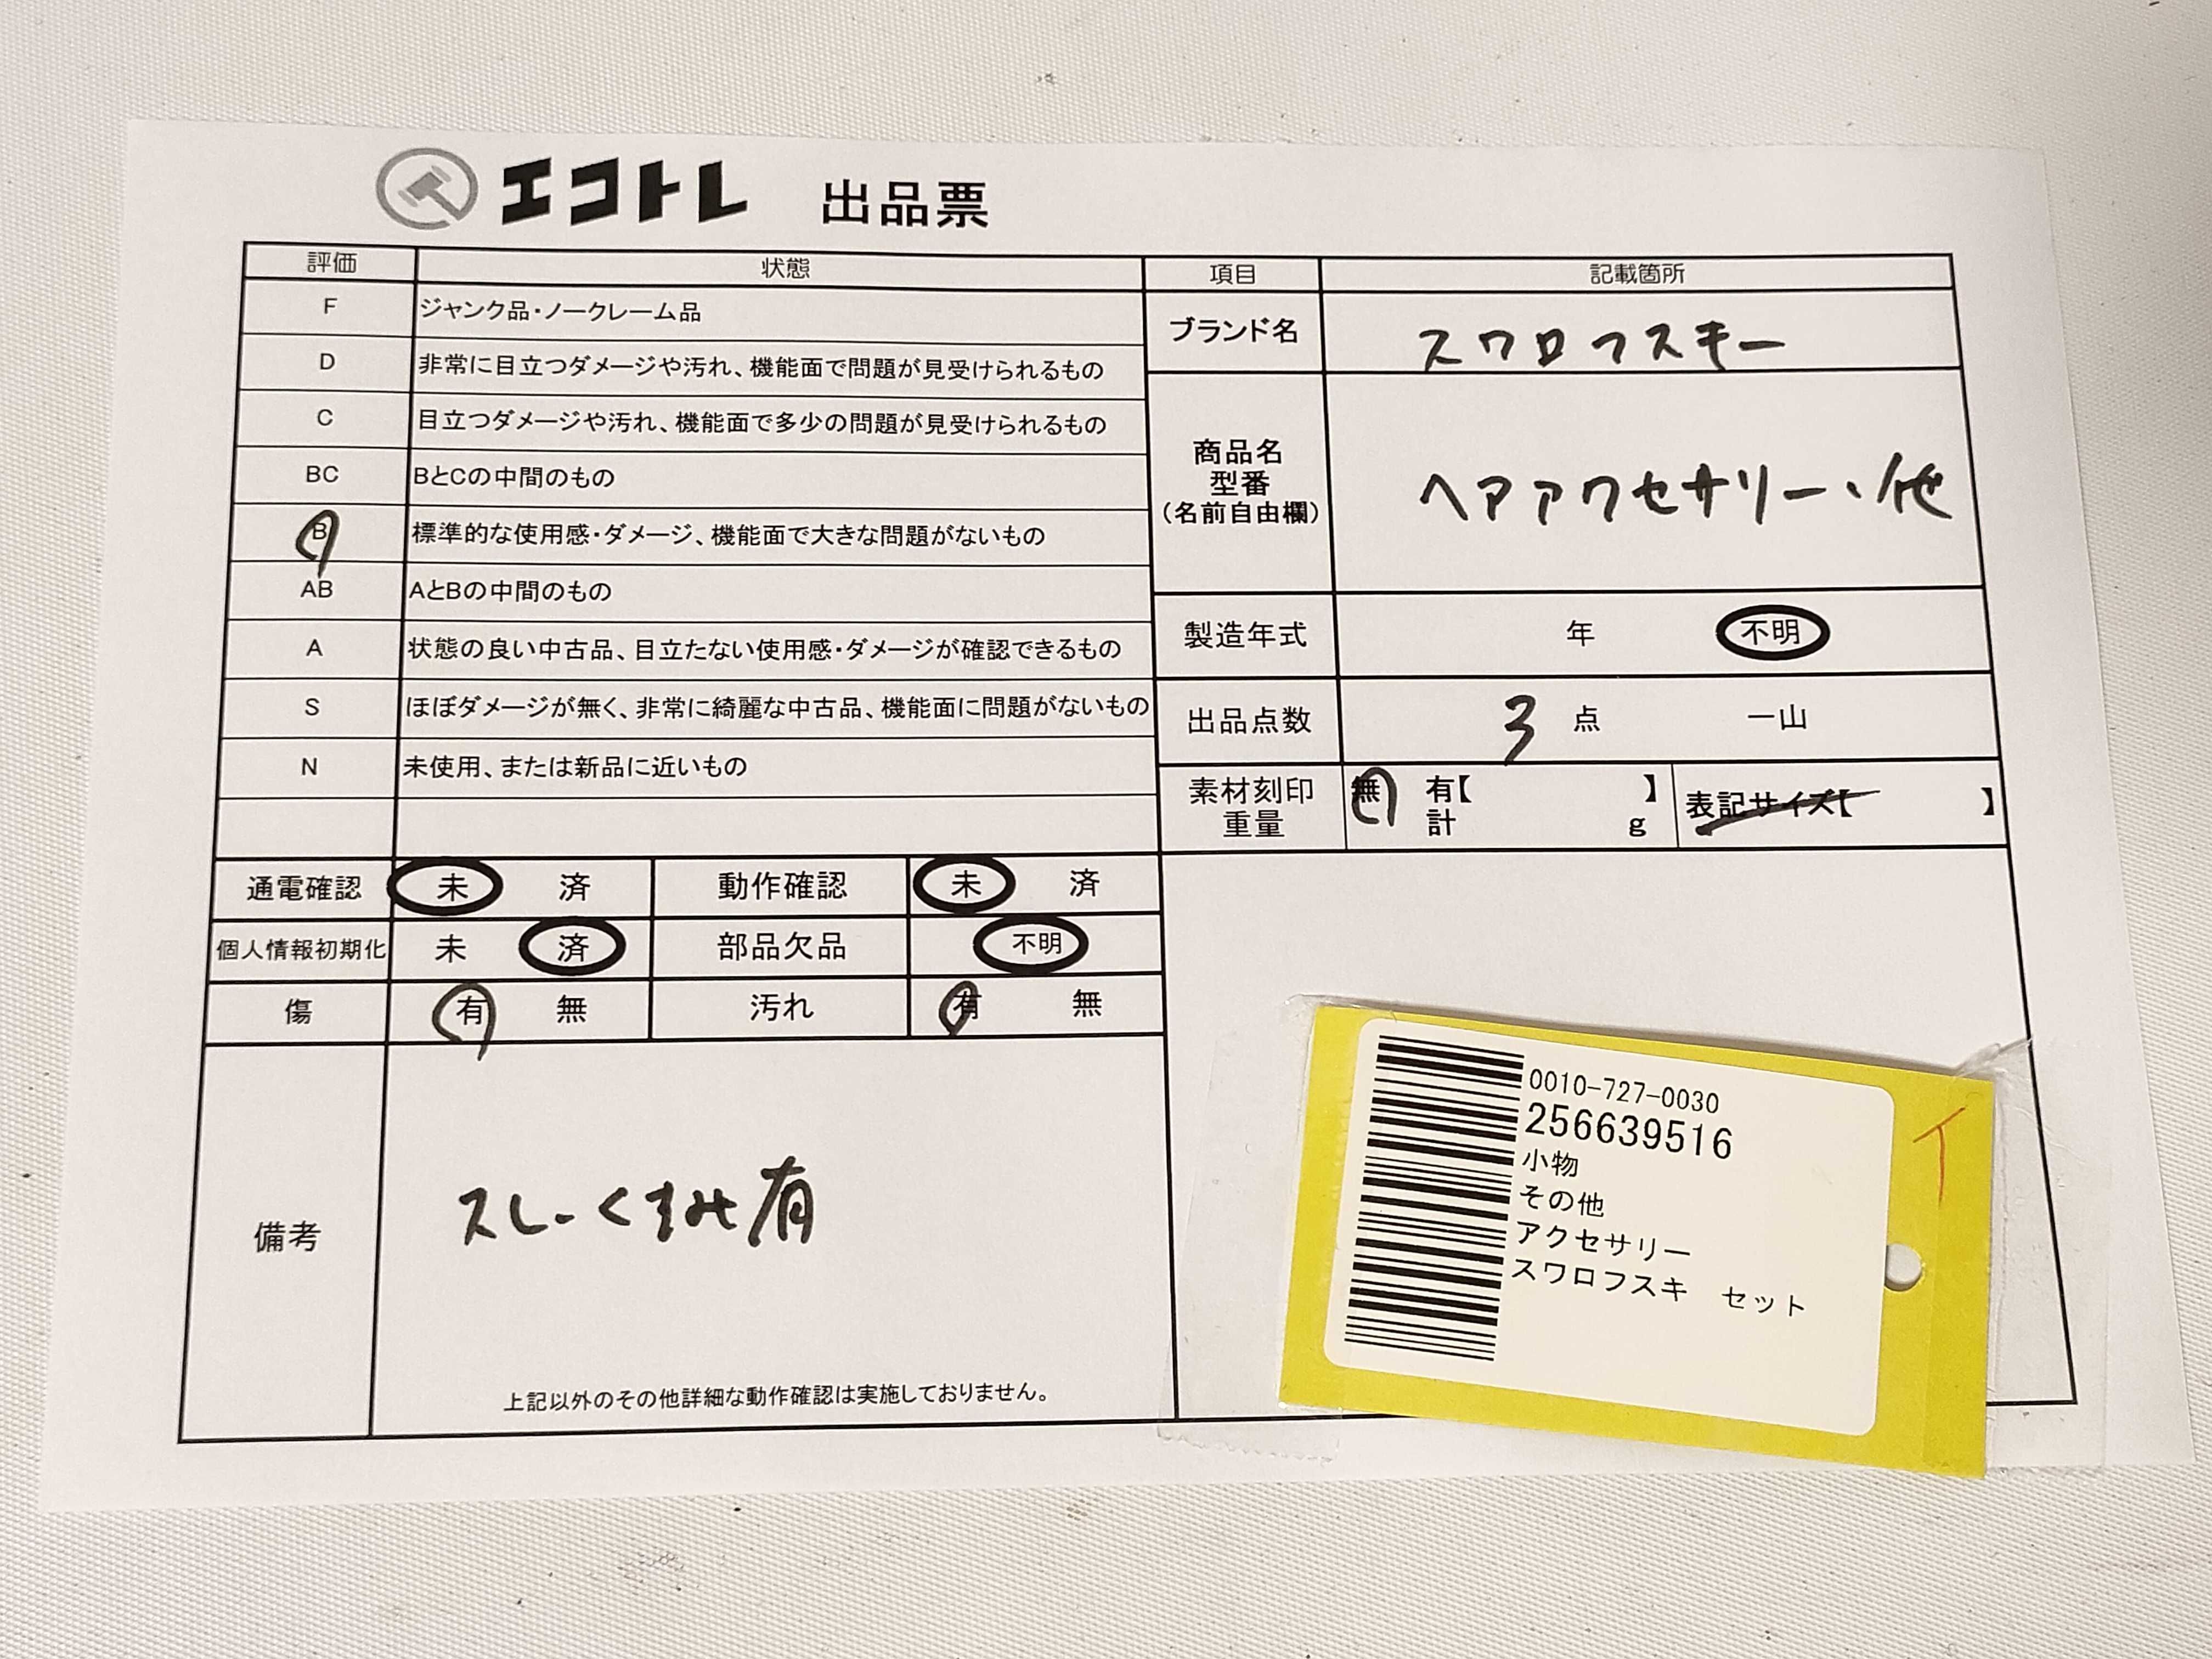 エコトレ 出品票
評価 状態 項目 記載箇所
F ジャンク品・ノークレーム品
D 非常に目立つダメージや汚れ、機能面で問題が見受けられるもの
C 目立つダメージや汚れ、機能面で多少の問題が見受けられるもの
BC BとCの中間のもの
B 標準的な使用感・ダメージ、機能面で大きな問題がないもの
AB AとBの中間のもの
A 状態の良い中古品、目立たない使用感・ダメージが確認できるもの
S ほぼダメージが無く、非常に綺麗な中古品、機能面に問題がないもの
N 未使用、または新品に近いもの
ブランド名 スワロフスキー
商品名
型番
(名前自由欄)
ヘアアクセサリー、他
製造年式 年 不明
出品点数 3 点 一山
素材刻印 無 有【 】
重量 計 g
表記サイズ【 】
通電確認 未 済 動作確認 未 済
個人情報初期化 未 済 部品欠品 不明
傷 有 無 汚れ 有 無
備考
スレ、くすみ有
上記以外のその他詳細な動作確認は実施しておりません。
0010-727-0030
256639516
小物
その他
アクセサリー
スワロフスキ セット